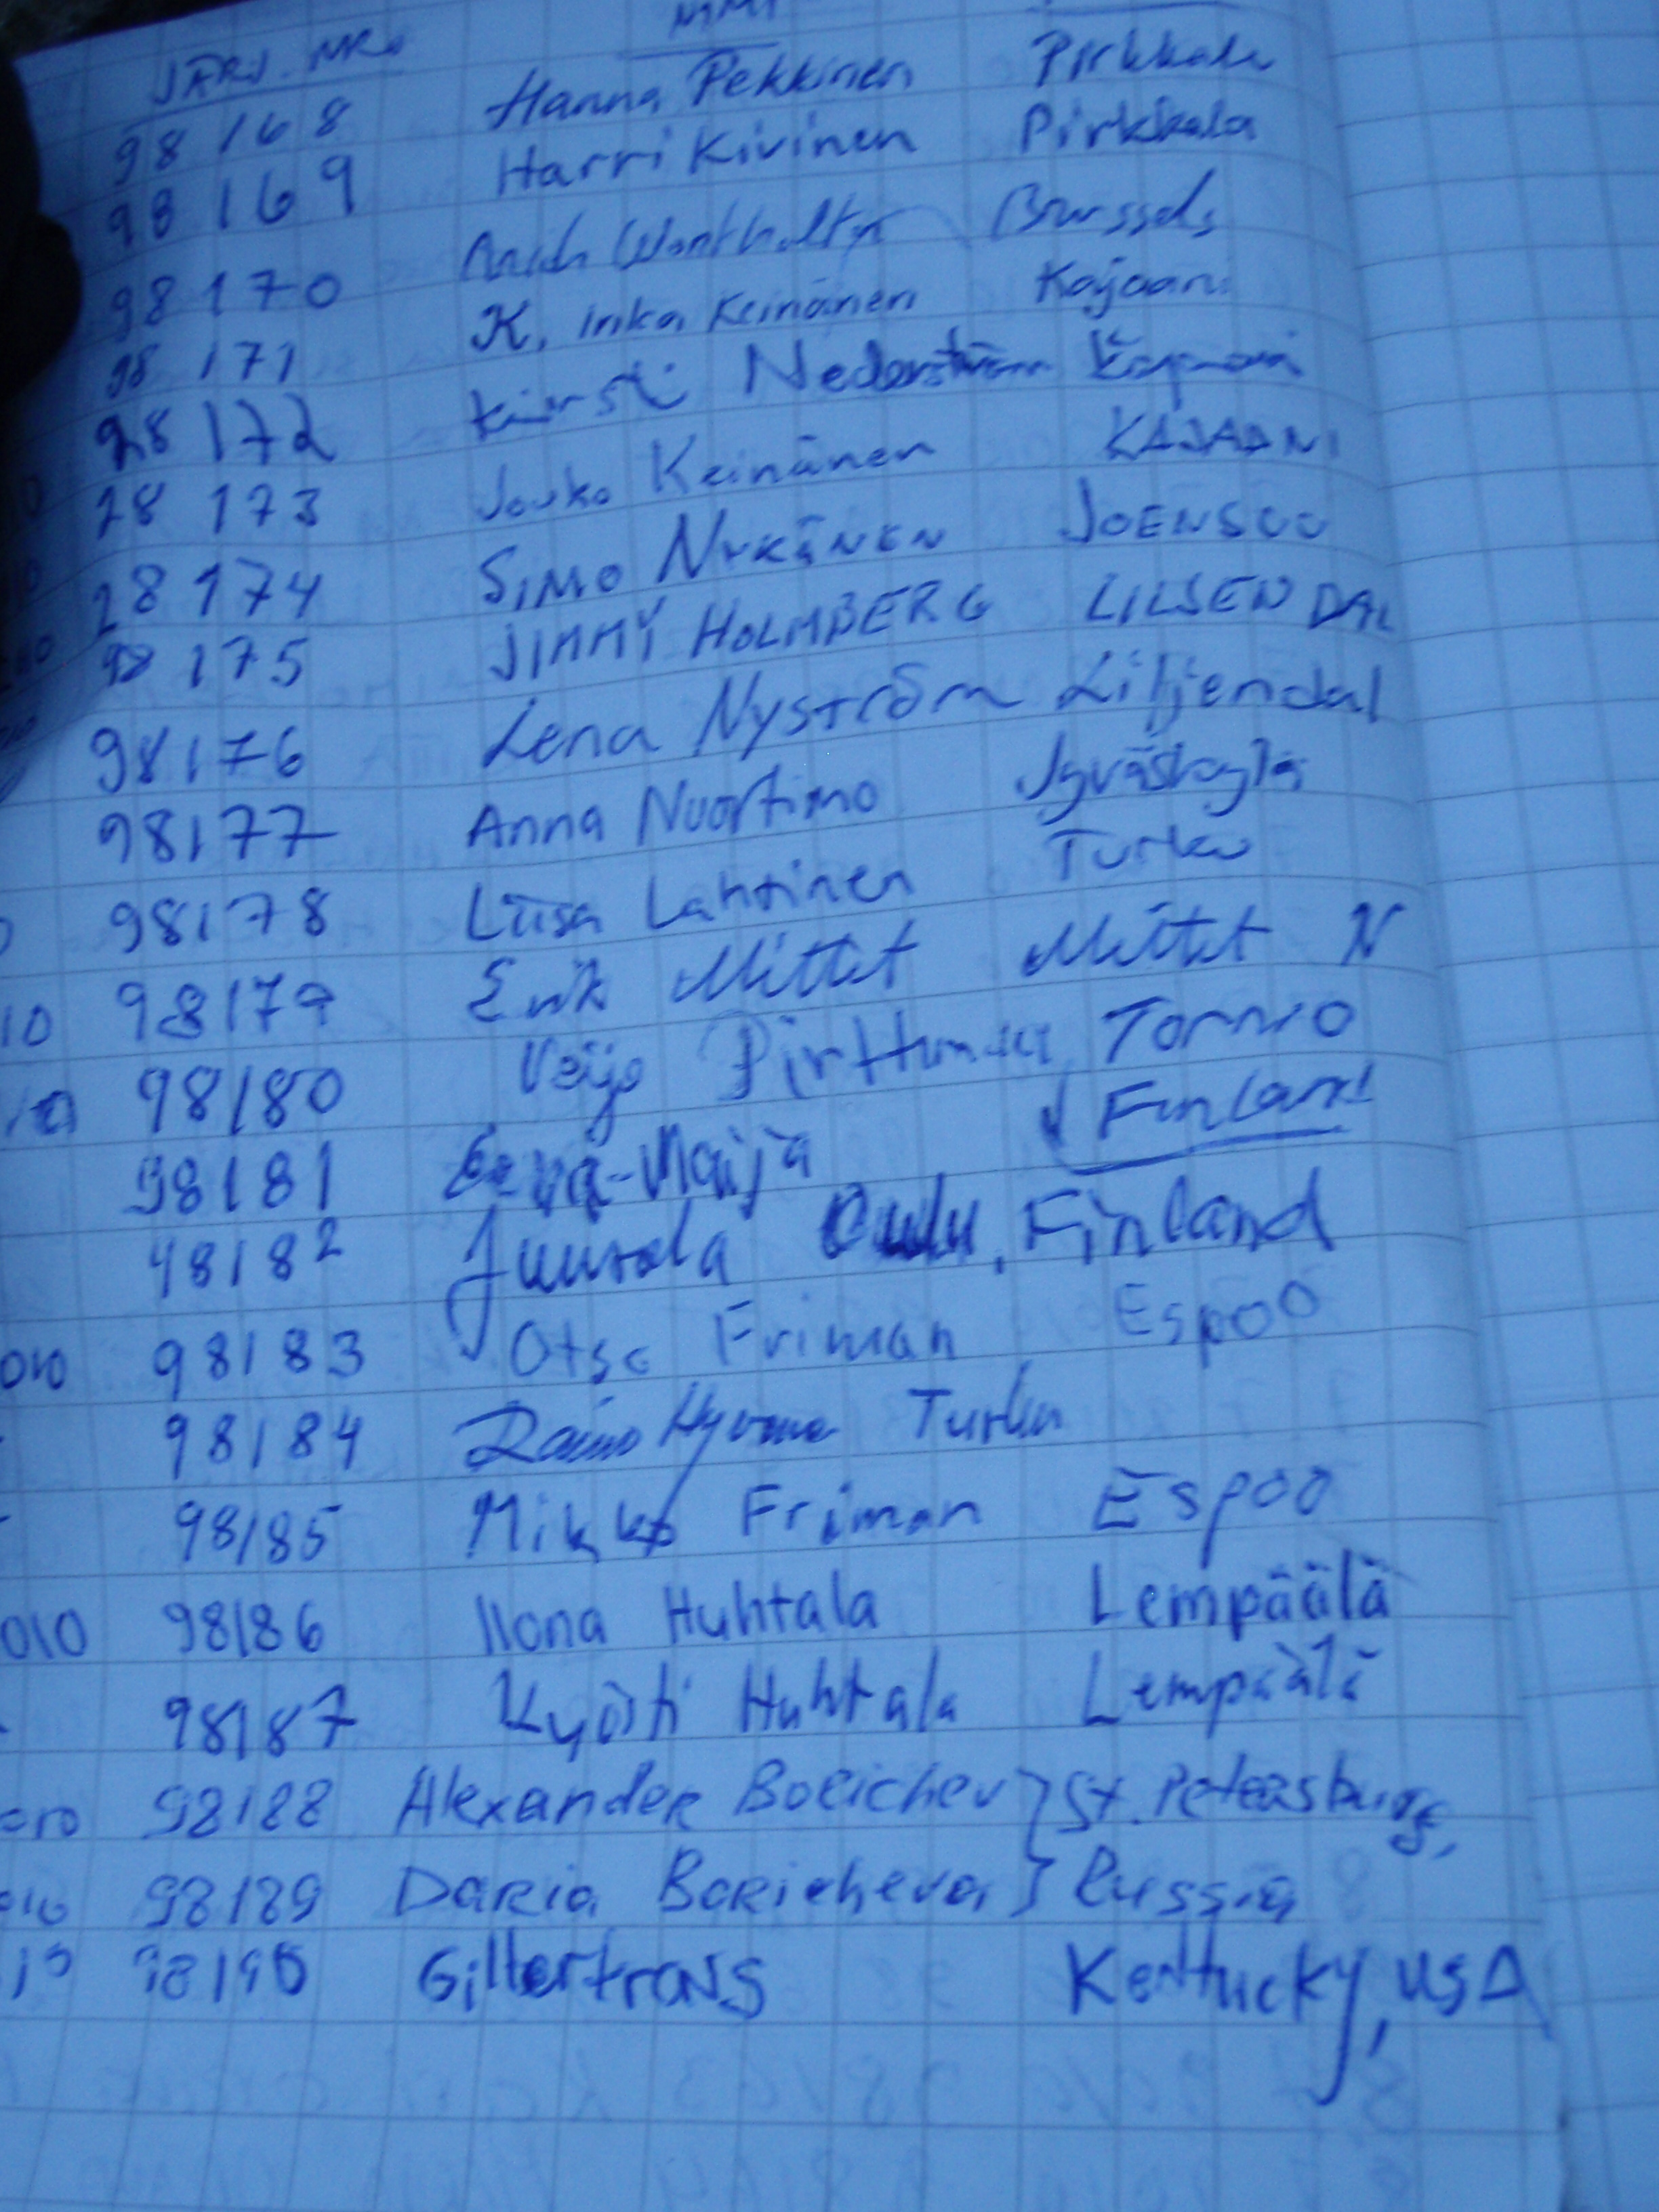 JÄRJ. NRO NIMI
98168 Hanna Pekkinen Pirkkala
98169 Harri Kivinen Pirkkala
98170 Brussels
98171 K. Inka Keinänen Kajaani
98172 Kirsti Nederström
98173 Jouko Keinänen KAJAANI
98174 SIMO NYKÄNEN JOENSUU
98175 JIMMY HOLMBERG LILJENDAL
98176 Lena Nyström Liljendal
98177 Anna Nuortimo Jyväskylä
98178 Liisa Lahtinen Turku
10 98179 Erik Mittet Mittet N
10 98180 Veijo Tornio
98181 Eeva-Maija Finland
98182 Juurola Oulu, Finland
010 98183 Otso Friman Espoo
98184 Turku
98185 Mikko Friman Espoo
010 98186 Ilona Huhtala Lempäälä
98187 Kyösti Huhtala Lempäälä
010 98188 Alexander Borichev } St. Petersburg,
010 98189 Daria Boricheva } Russia
10 98190 Kentucky, USA